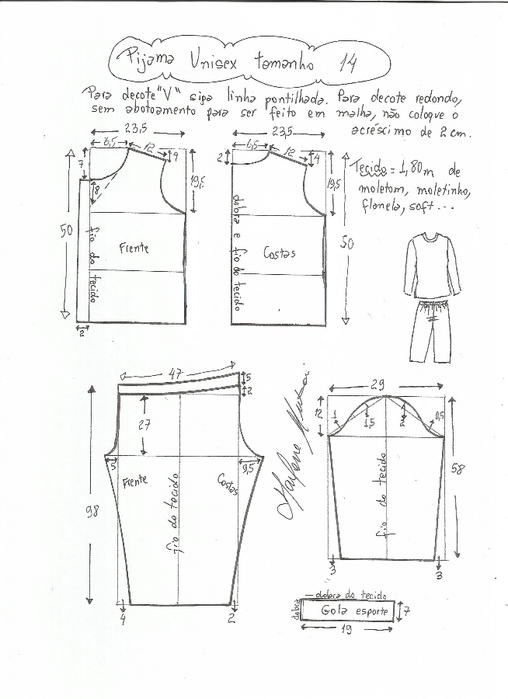 Pijama Unisex tamanho 14
Para decote "V" siga linha pontilhada. Para decote redondo,
sem abotoamento para ser feito em malha, não coloque o
acréscimo de 2 cm.
23,5
6,5
12
4
7
8
19,5
50
fio do tecido
Frente
2
23,5
6,5
12
4
2
19,5
50
dobra e fio do tecido
Costas
Tecido = 1,80m de
moletom, moletinho,
flanela, soft...
47
5
2
27
98
5
Frente
fio do tecido
Costas
9,5
4
2
29
12
1
1,5
2
0,5
58
fio do tecido
3
3
dobra do tecido
dobra
Gola esporte
7
19